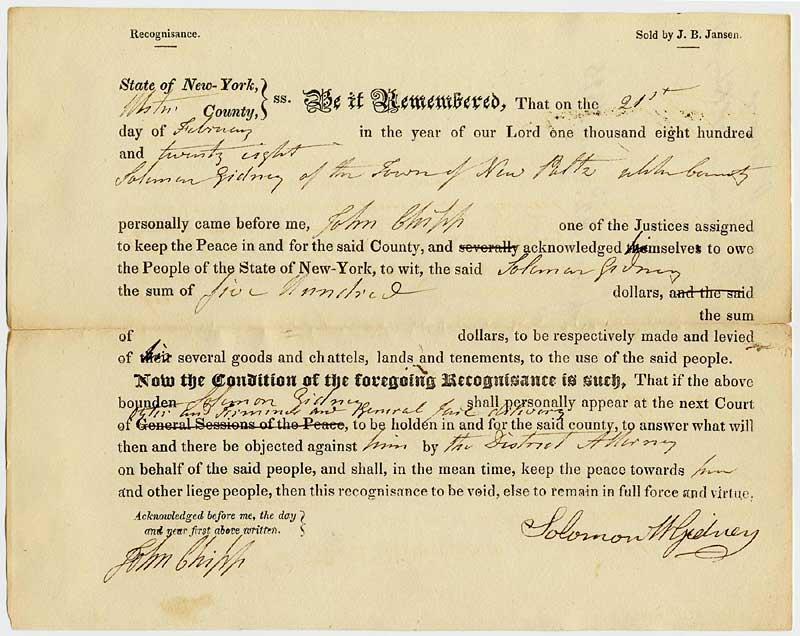 Recognisance.
Sold by J. B. Jansen.
State of New-York,
Ulster County, } ss. Be it Remembered, That on the 21st
day of February in the year of our Lord one thousand eight hundred
and twenty eight
Solomon Gidney of the Town of New Paltz County
personally came before me, John Chipp one of the Justices assigned
to keep the Peace in and for the said County, and severally acknowledged himself to owe
the People of the State of New-York, to wit, the said Solomon Gidney
the sum of five Hundred dollars, and the said
the sum
of dollars, to be respectively made and levied
of his several goods and chattels, lands and tenements, to the use of the said people.
Now the Condition of the foregoing Recognisance is such, That if the above
bounden Solomon Gidney shall personally appear at the next Court
Oyer and Terminer and General Jail delivery
of General Sessions of the Peace, to be holden in and for the said county, to answer what will
then and there be objected against him by the District Attorney
on behalf of the said people, and shall, in the mean time, keep the peace towards
and other liege people, then this recognisance to be void, else to remain in full force and virtue.
Acknowledged before me, the day
and year first above written. }
John Chipp
Solomon W Gidney